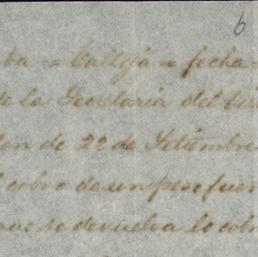 6
ba = Calleja = fecha
de la Secretaria del
den de 22 de Setiembre
l cobro de un peso fuer
que se devuelva lo cobr